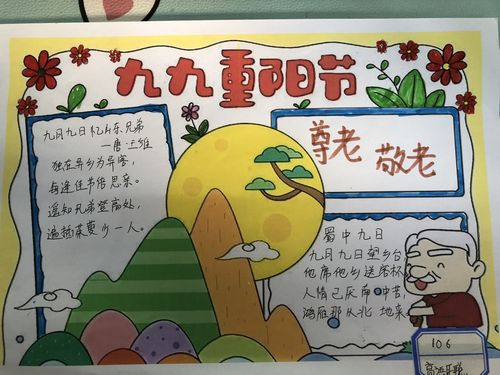 九九重阳节
九月九日忆山东兄弟
—唐·王维
独在异乡为异客，
每逢佳节倍思亲。
遥知兄弟登高处，
遍插茱萸少一人。
尊老 敬老
蜀中九日
九月九日望乡台，
他席他乡送客杯
人情已厌南中苦，
鸿雁那从北地来
106